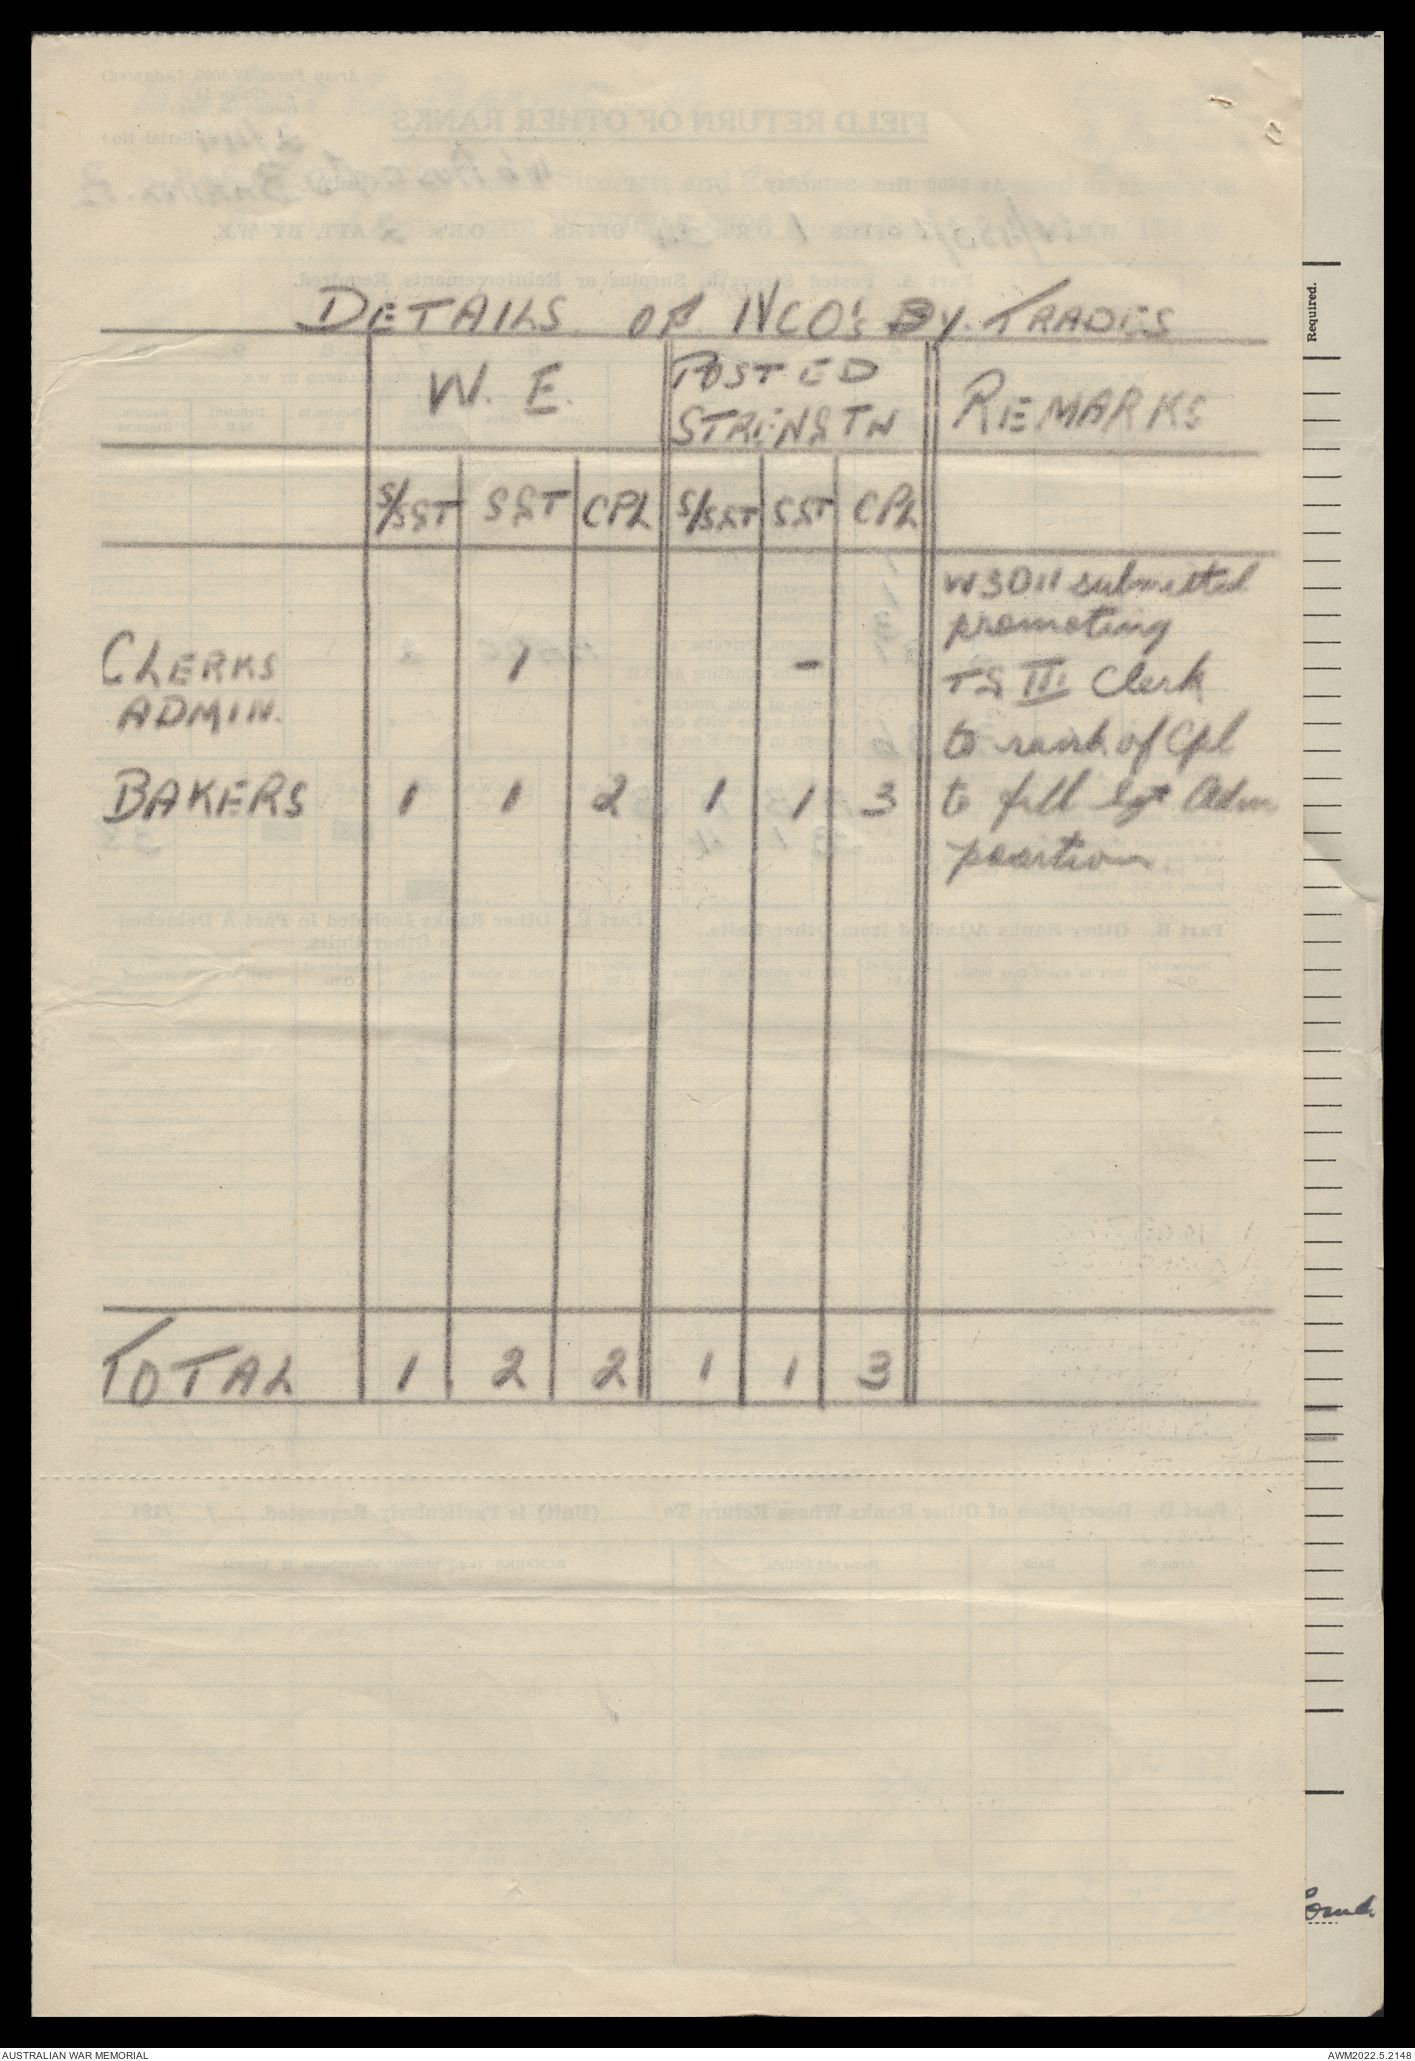 DETAILS OF NCO's BY TRADES
W. E. POSTED STRENGTH REMARKS
S/SGT SGT CPL S/SGT SGT CPL
CLERKS ADMIN. 1 -
BAKERS 1 1 2 1 1 3
W3011 submitted
promoting
TG III Clerk
to rank of Cpl
to fill Sgt Adm
position.
TOTAL 1 2 2 1 1 3
Required.
Comd.
AUSTRALIAN WAR MEMORIAL
AWM2022.5.2148